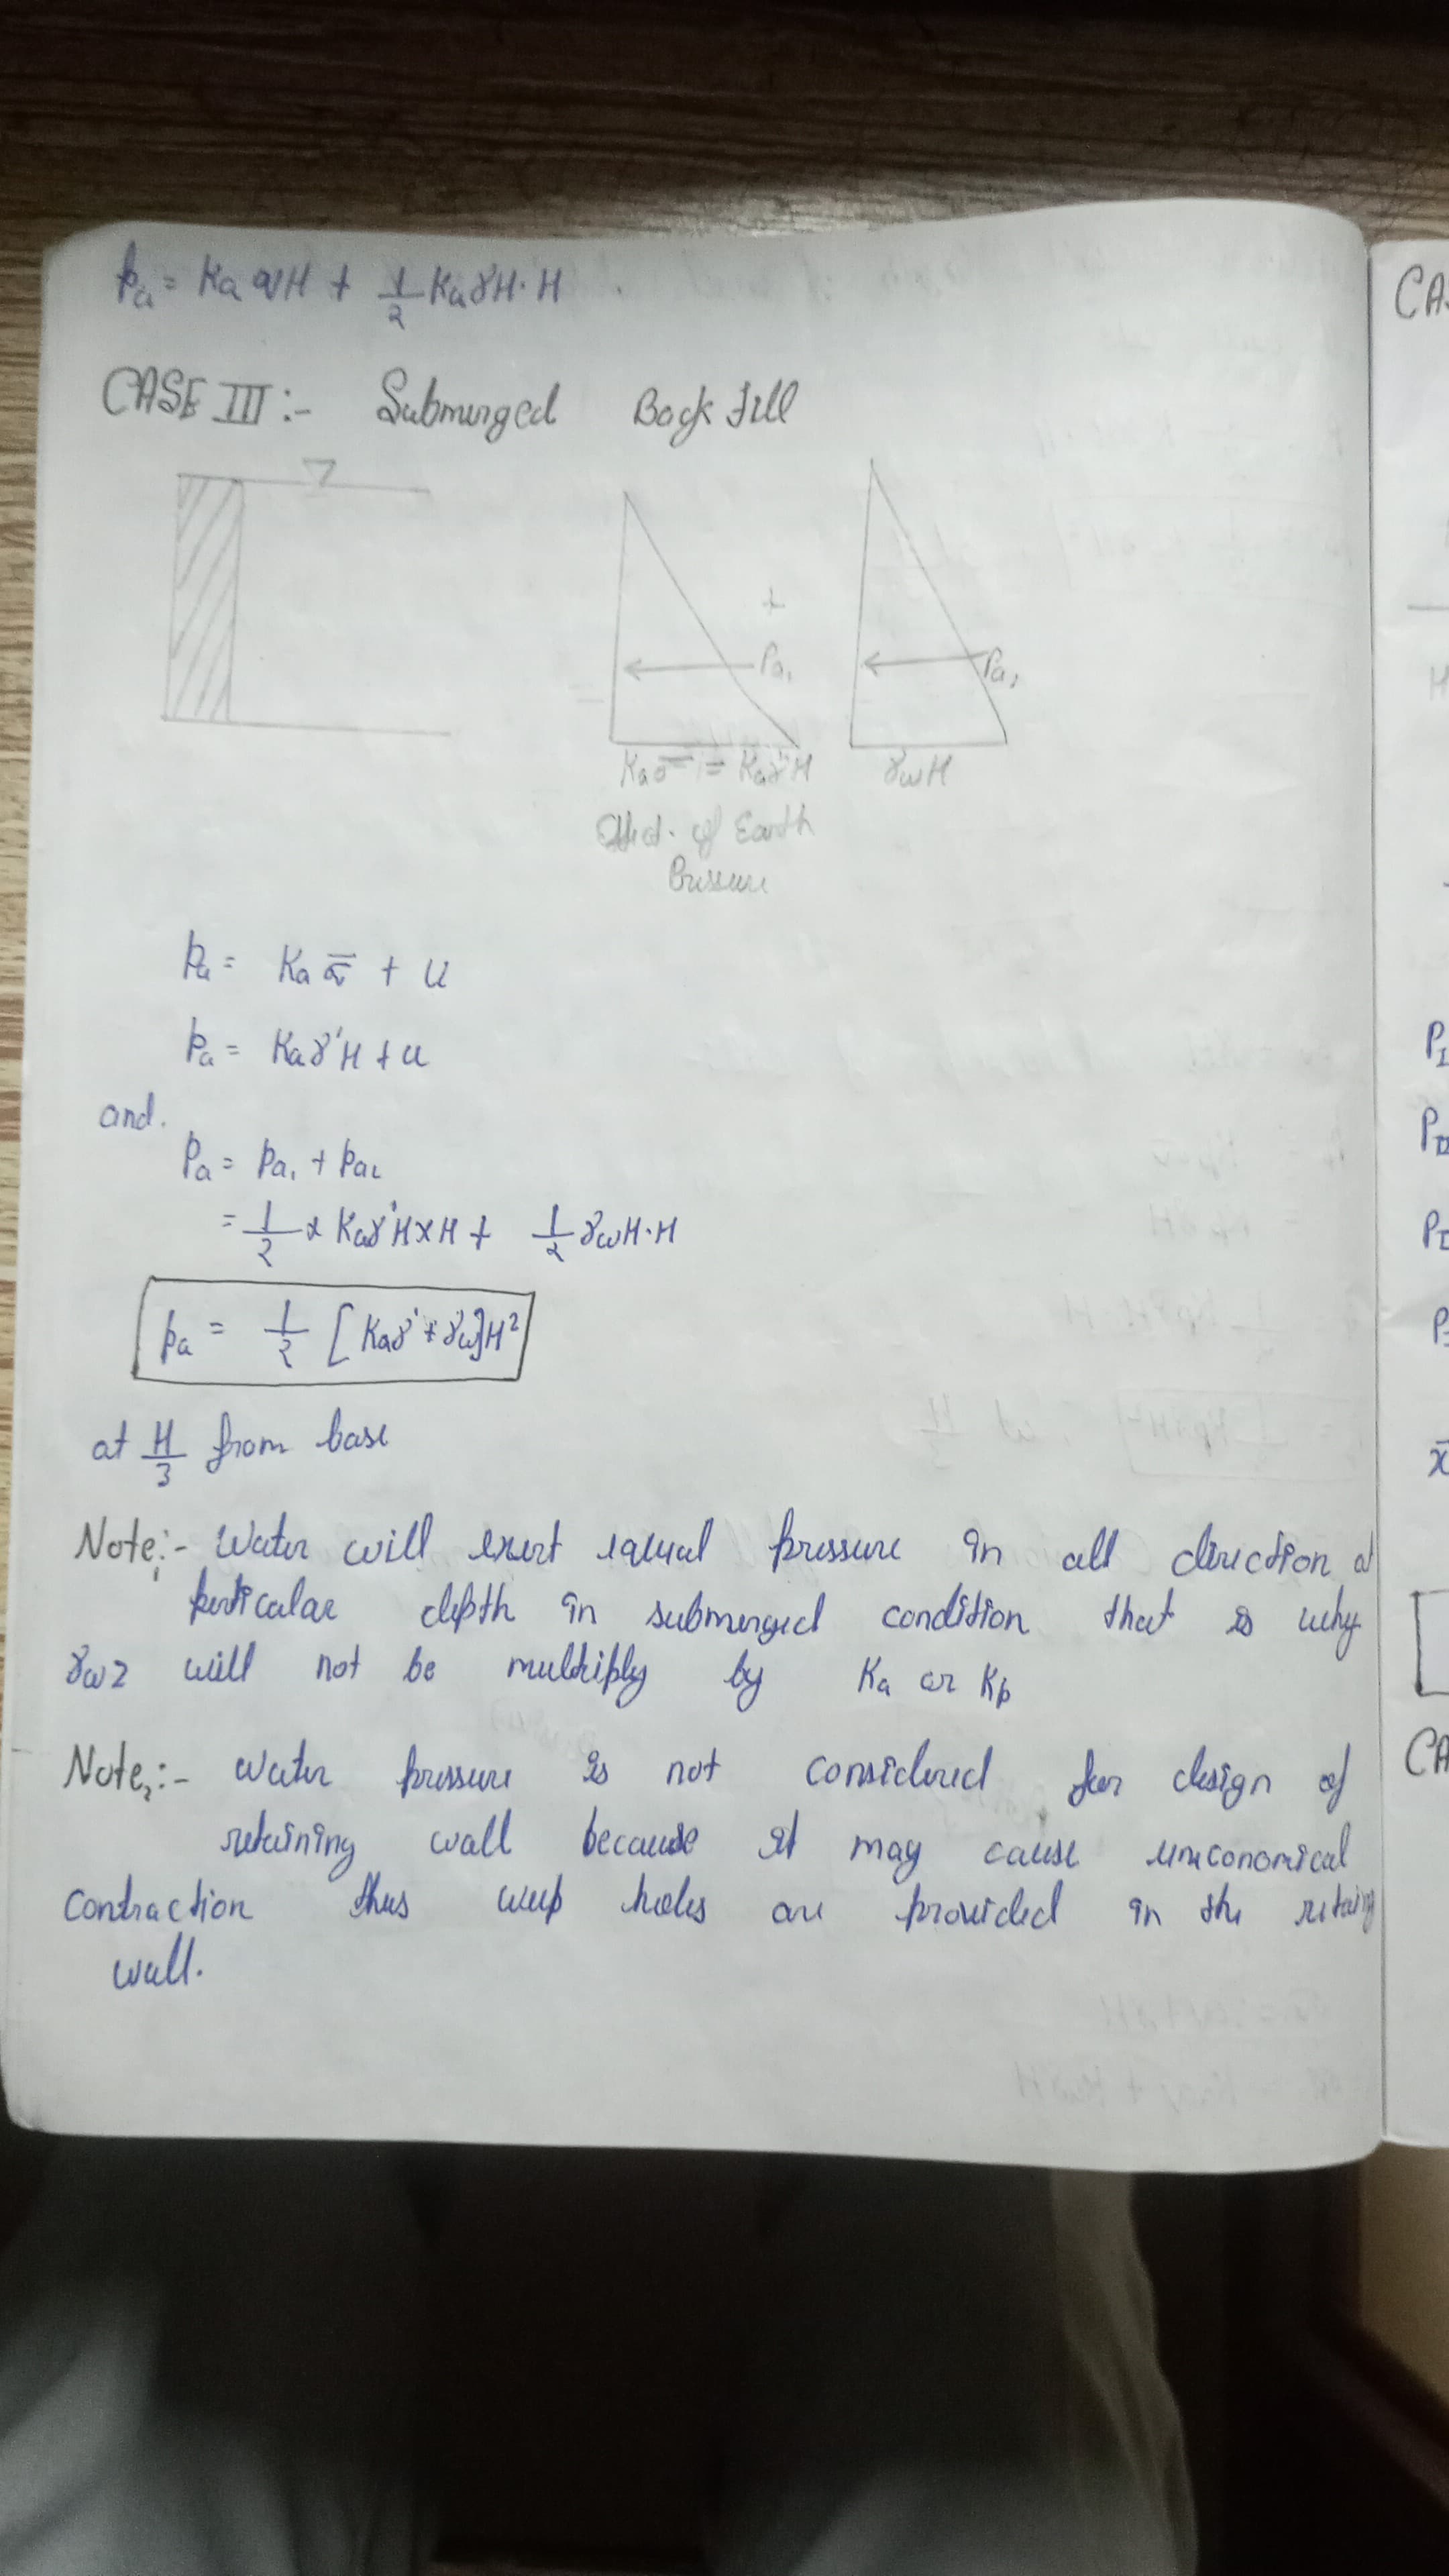 pa = Ka qH + 1/2 KaγH·H
CASE III:- Submerged Back fill
+
Pa1
Pa2
Kaσ̄ = Kaγ'H
γwH
Effect. of Earth
Pressure
Pa = Ka σ̄v + U
Pa = Kaγ'H + u
and.
Pa = Pa1 + Pa2
= 1/2 x Kaγ'H x H + 1/2 γwH·H
Pa = 1/2 [Kaγ' + γw]H²
at H/3 from base
Note1:- Water will exert equal pressure in all direction at
perticular depth in submerged condition that is why
γwz will not be multiply by Ka or Kp
Note2:- Water pressure is not considered for design of
retaining wall because it may cause uneconomical
contraction thus weep holes are provided in the retaing
wall.
CA
H
PI
PII
x̄
CA